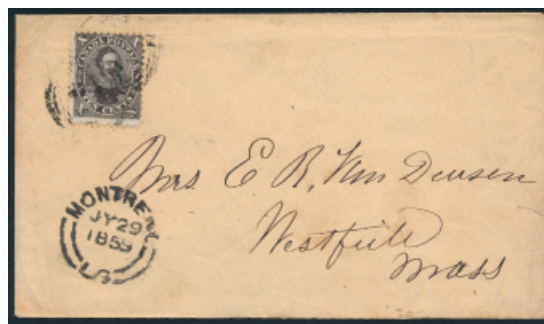 CANADA POSTAGE
TEN CENTS
Mrs E R. Van Deusen
Westfield
Mass
MONTREAL
JY 29
1859